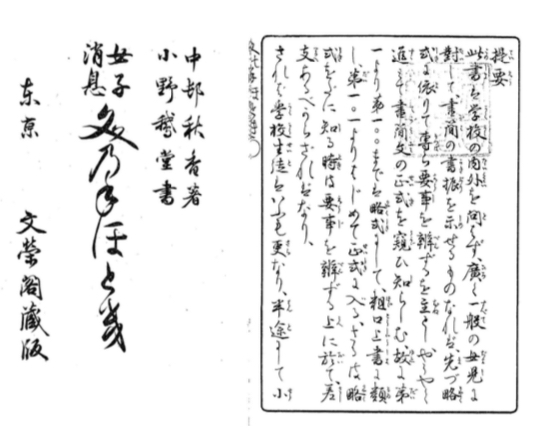 提要
此書は学校の内外を問はず、廣く一般の女児に
對して、書簡の書振を示せるものなれば、先づ略
式に依りて専ら要事を辨ずるを主とし、やうやく
進みて書簡文の正式を窺ひ知らしむ、故に第
一より第一〇〇までは略式にして、粗口上書に類
し、第一〇一よりはじめて正式に入る、されば略
式をだに知る時は要事を辨ずる上に於て差
支あるべからざればなり、
されば学校生徒はいふも更なり、半途にして小
中邨秋香著
小野鵞堂書
女子
消息
文乃てほと幾
东京
文榮閣蔵版